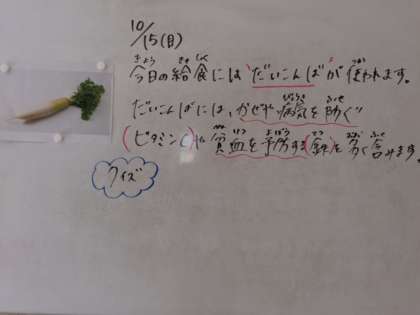 10/15(月)
今日の給食には"だいこんば"が使われます。
だいこんばには、かぜや病気を防ぐ
(ビタミンC)や貧血を予防する(鉄)を多く含みます。
クイズ